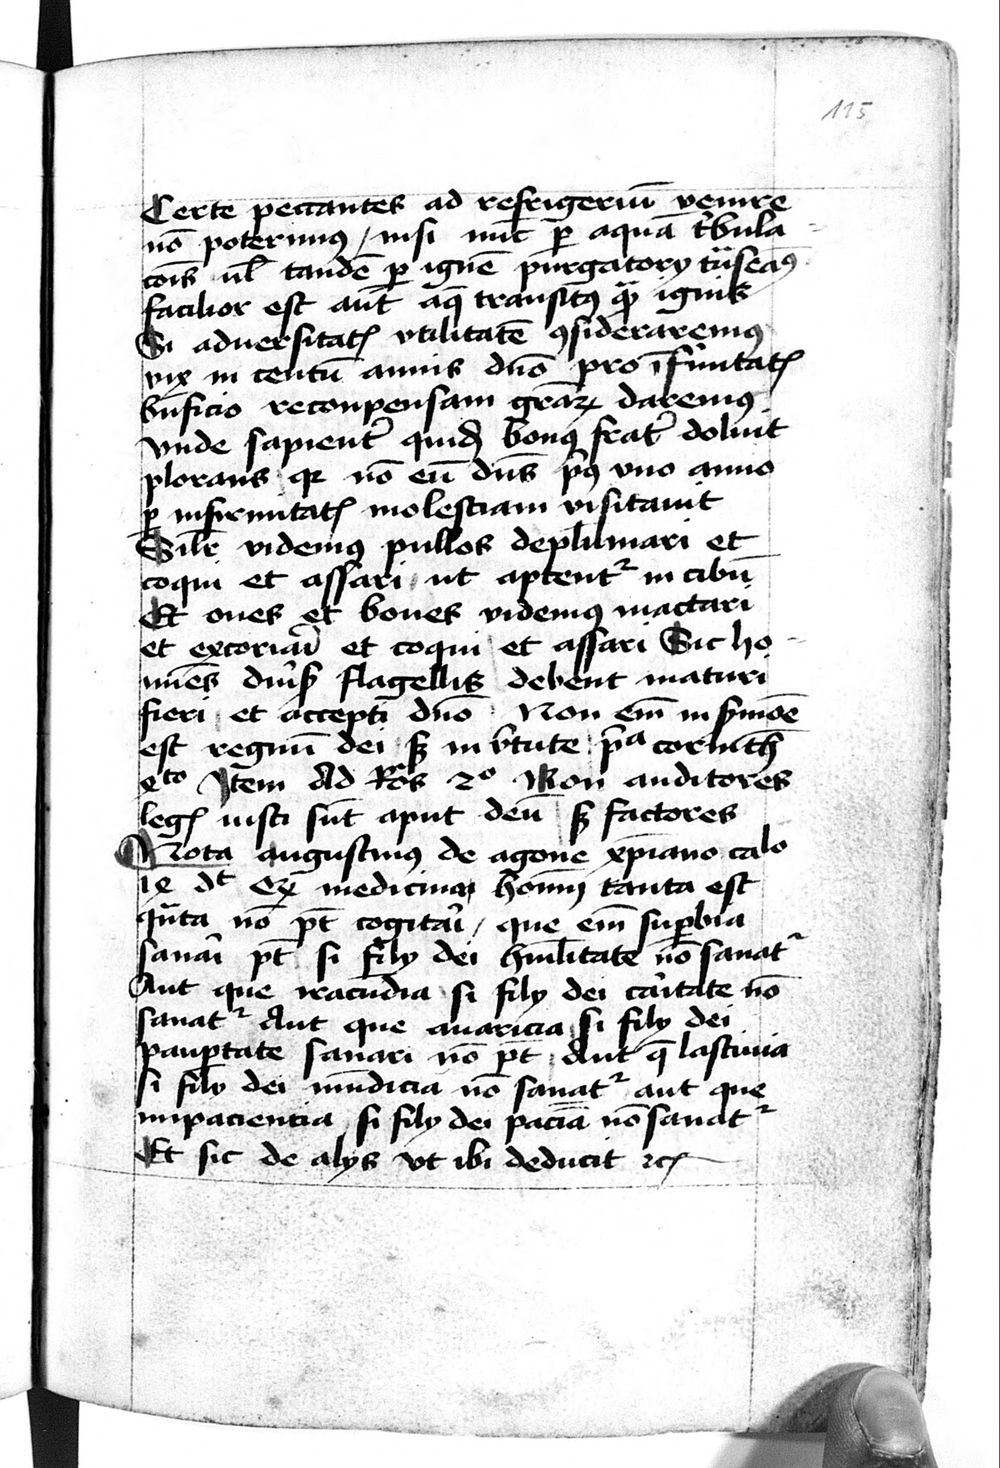 115
Certe peccantes ad refrigeriū venire
nō poterimꝰ / nisi nūc ꝑ aquā tͥbula
cōis uł tandē ꝑ ignē purgatory tͣseamꝰ
facilior est aut̄ aq̄ transitꝰ quā ignis
Si aduersitatꝭ vtilitatē ꝯsideraremꝰ
vix in centū annis dn̄o pro īfirmitatꝭ
bn̄ficio reconpensam graꝝ daremꝰ
vnde sapient̉ quidā bonꝰ frat̉ doluit
plorans qꝛ nō eū dn̄s pꝰ vno anno
ꝑ infirmitatꝭ molestiam visitauit
Sil̄r videmꝰ pullos deplumari et
coqui et assari ut aptent᷑ in cibū
Et oues et boues videmꝰ mactari
et excoriai᷑ et coqui et assari Sic ho-
mīes diu̾sꝭ flagellis debent maturi
fieri et accepti dn̄o Non em̄ in sermōe
est regnū dei sꝫ in v̾tute pͥa corinth
Itē Ad Ro᷑s 2º Non auditores
legꝭ iusti sūt aput deū sꝫ factores
Nota augustinꝰ de agone xp̄iano ca͞lo
ix dt̄ medicina hom̄ tanta est
qͣnta nō pt̄ cogitai᷑ / que em̄ suꝑbia
sanai᷑ pt̄ si fily dei humilitate nō sanat᷑
Aut que iracūdia si fily dei caͥtate nō
sanat᷑ Aut que auaricia si fily dei
pauꝑtate sanari nō pt̄ Aut q̄ lasciuia
si fily dei mūdicia nō sanat᷑ aut que
impaciencia si fily dei paciā nō sanat᷑
Et sic de alys vt ibi deducit ⁊cꝭ